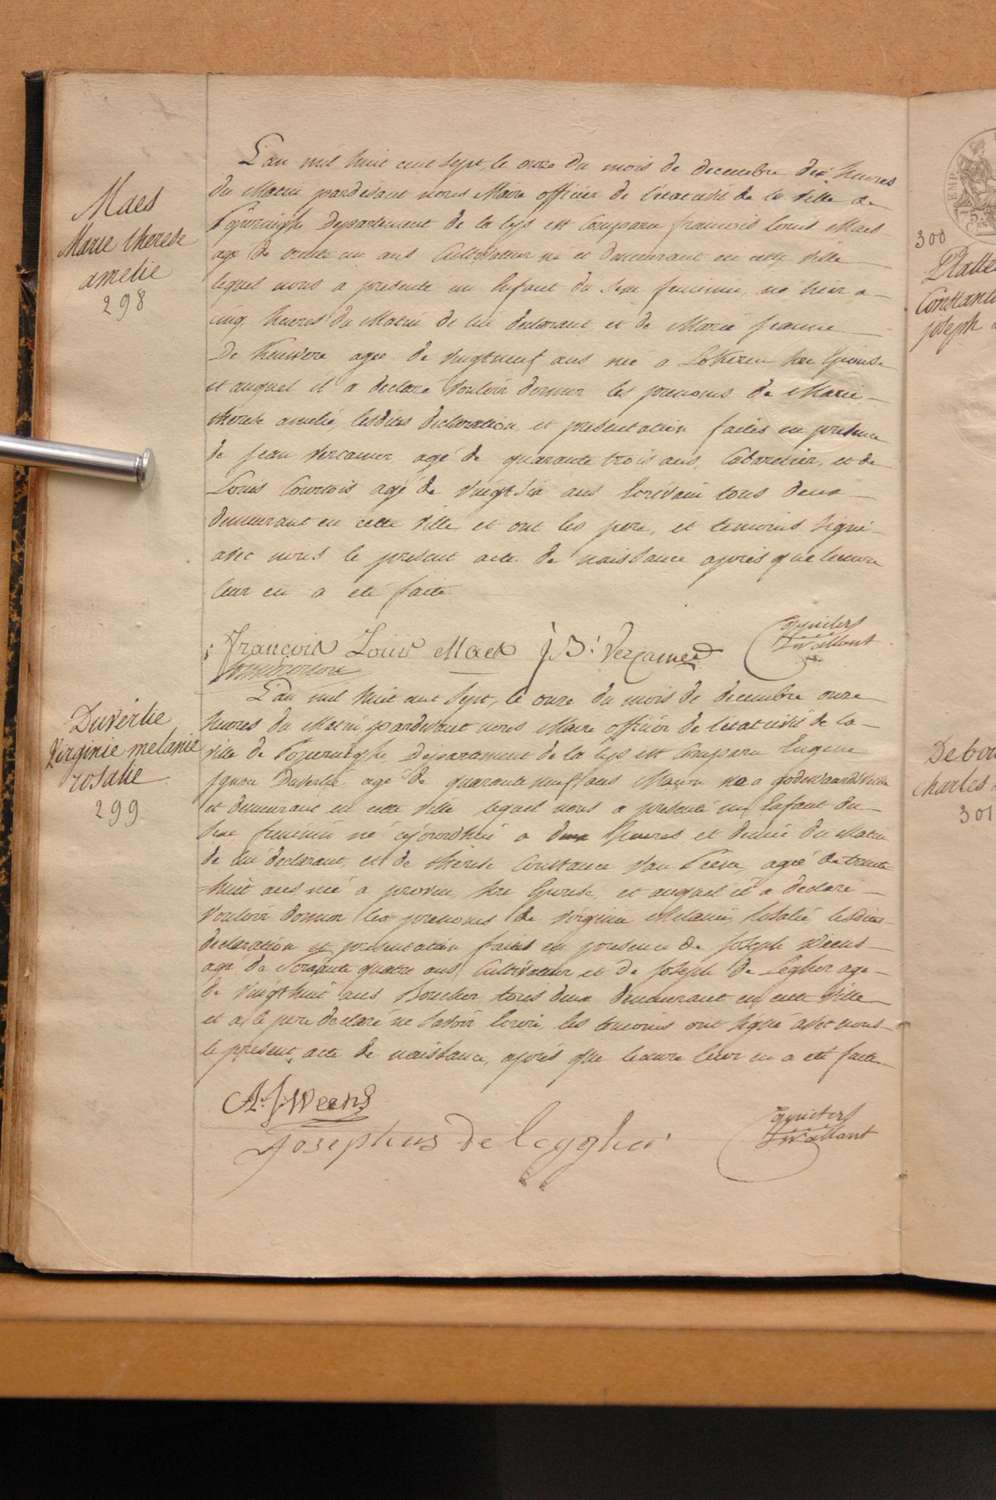 Maes
Marie therese
amelie
298
L'an mil huit cent sept, le onze du mois de decembre dix heures
du Matin pardevant nous Maire officier de l'etat civil de la ville de
Poperinghe Departement de la Lys est comparu francois Louis Maes
age de trente un ans Cultivateur ne et demeurant en cette ville
lequel nous a presente un Enfant du Sexe feminin, ne hier a
cinq heures du Matin de lui declarant et de Marie jeanne
De agee de vingtneuf ans nee a Son Epouse
et auquel il a declare vouloir donner les prenoms de Marie
therese amelie, lesdites declaration et presentation faites en presence
de jean Vercamer agé de quarante trois ans, Cabaretier, et de
Louis Courtois agé de vingt six ans Ecrivain tous deux
demeurant en cette ville et ont les pere, et temoins signé
avec nous le present acte de naissance après que lecture
leur en a eté faite
françois Louis Maes J. B. Vercamer
Duvertie
Virginie melanie
rosalie
299
L'an mil huit cent sept, le onze du mois de decembre onze
heures du Matin pardevant nous Maire officier de l'etat civil de la
ville de Poperinghe Departement de la Lys est comparu Eugene
Duvertie age de quarante neuf ans Maçon ne a
et demeurant en cette ville lequel nous a presenté un Enfant du
Sexe feminin né aujourdhui a deux heures et demie du Matin
de lui declarant, et de therese Constance Van agée de trente
huit ans née a proven, Son Epouse, et auquel il a declaré
vouloir donner les prenoms de Virginie Melanie, Rosalie lesdites
declaration et presentation faites en presence de Joseph Weens
age de Soixante quatre ans Cultivateur et de Joseph De Legher age
de vingt huit ans Boucher tous deux demeurant en cette ville
et a, le pere declaré ne Savoir Ecrire, les temoins ont signé avec nous
le present acte de naissance, après que lecture leur en a eté faite
A. J. Weens
Josephus De legher
300
Constantin
joseph
charles
301